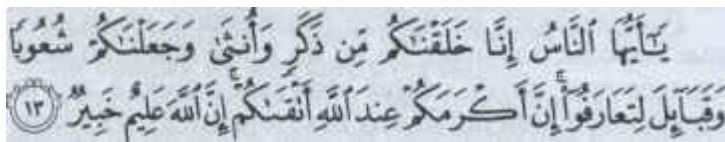 يَٰٓأَيُّهَا ٱلنَّاسُ إِنَّا خَلَقْنَٰكُم مِّن ذَكَرٍ وَأُنثَىٰ وَجَعَلْنَٰكُمْ شُعُوبًا
وَقَبَآئِلَ لِتَعَارَفُوٓا۟ ۚ إِنَّ أَكْرَمَكُمْ عِندَ ٱللَّهِ أَتْقَىٰكُمْ ۚ إِنَّ ٱللَّهَ عَلِيمٌ خَبِيرٌ ١٣